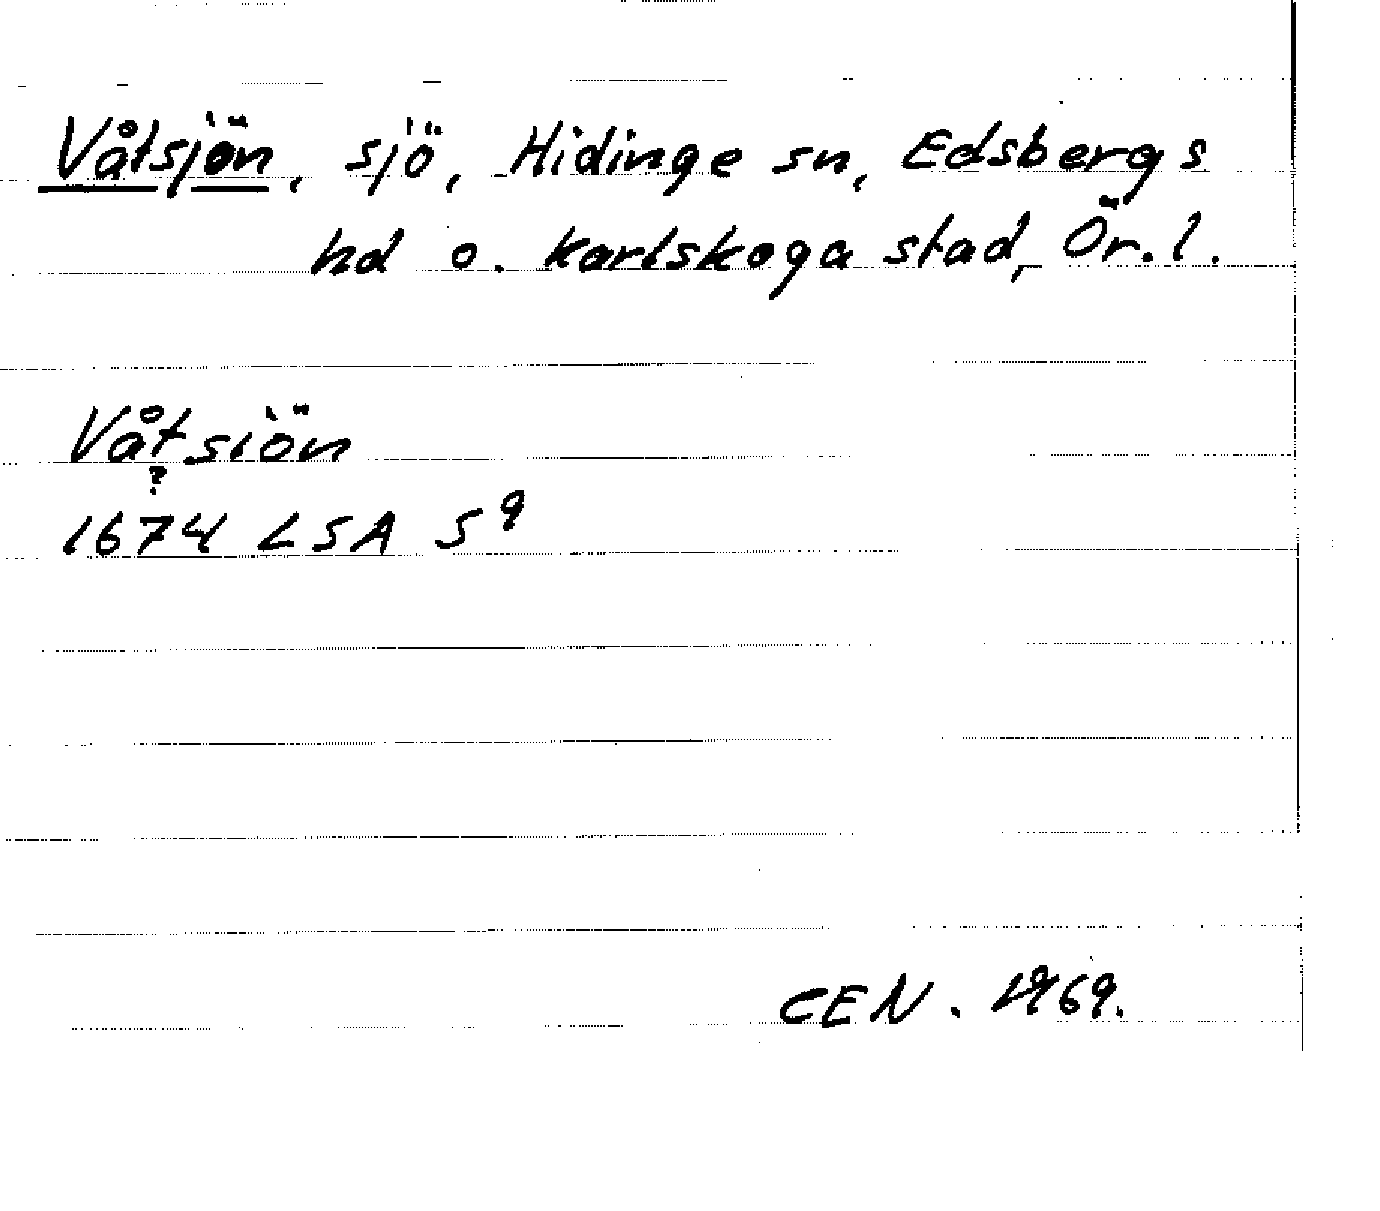 Våtsjön, sjö, Hidinge sn, Edsbergs
hd o. Karlskoga stad, Ör.l.
Våtsiön
?
1674 LSA S9
CEN. 1969.